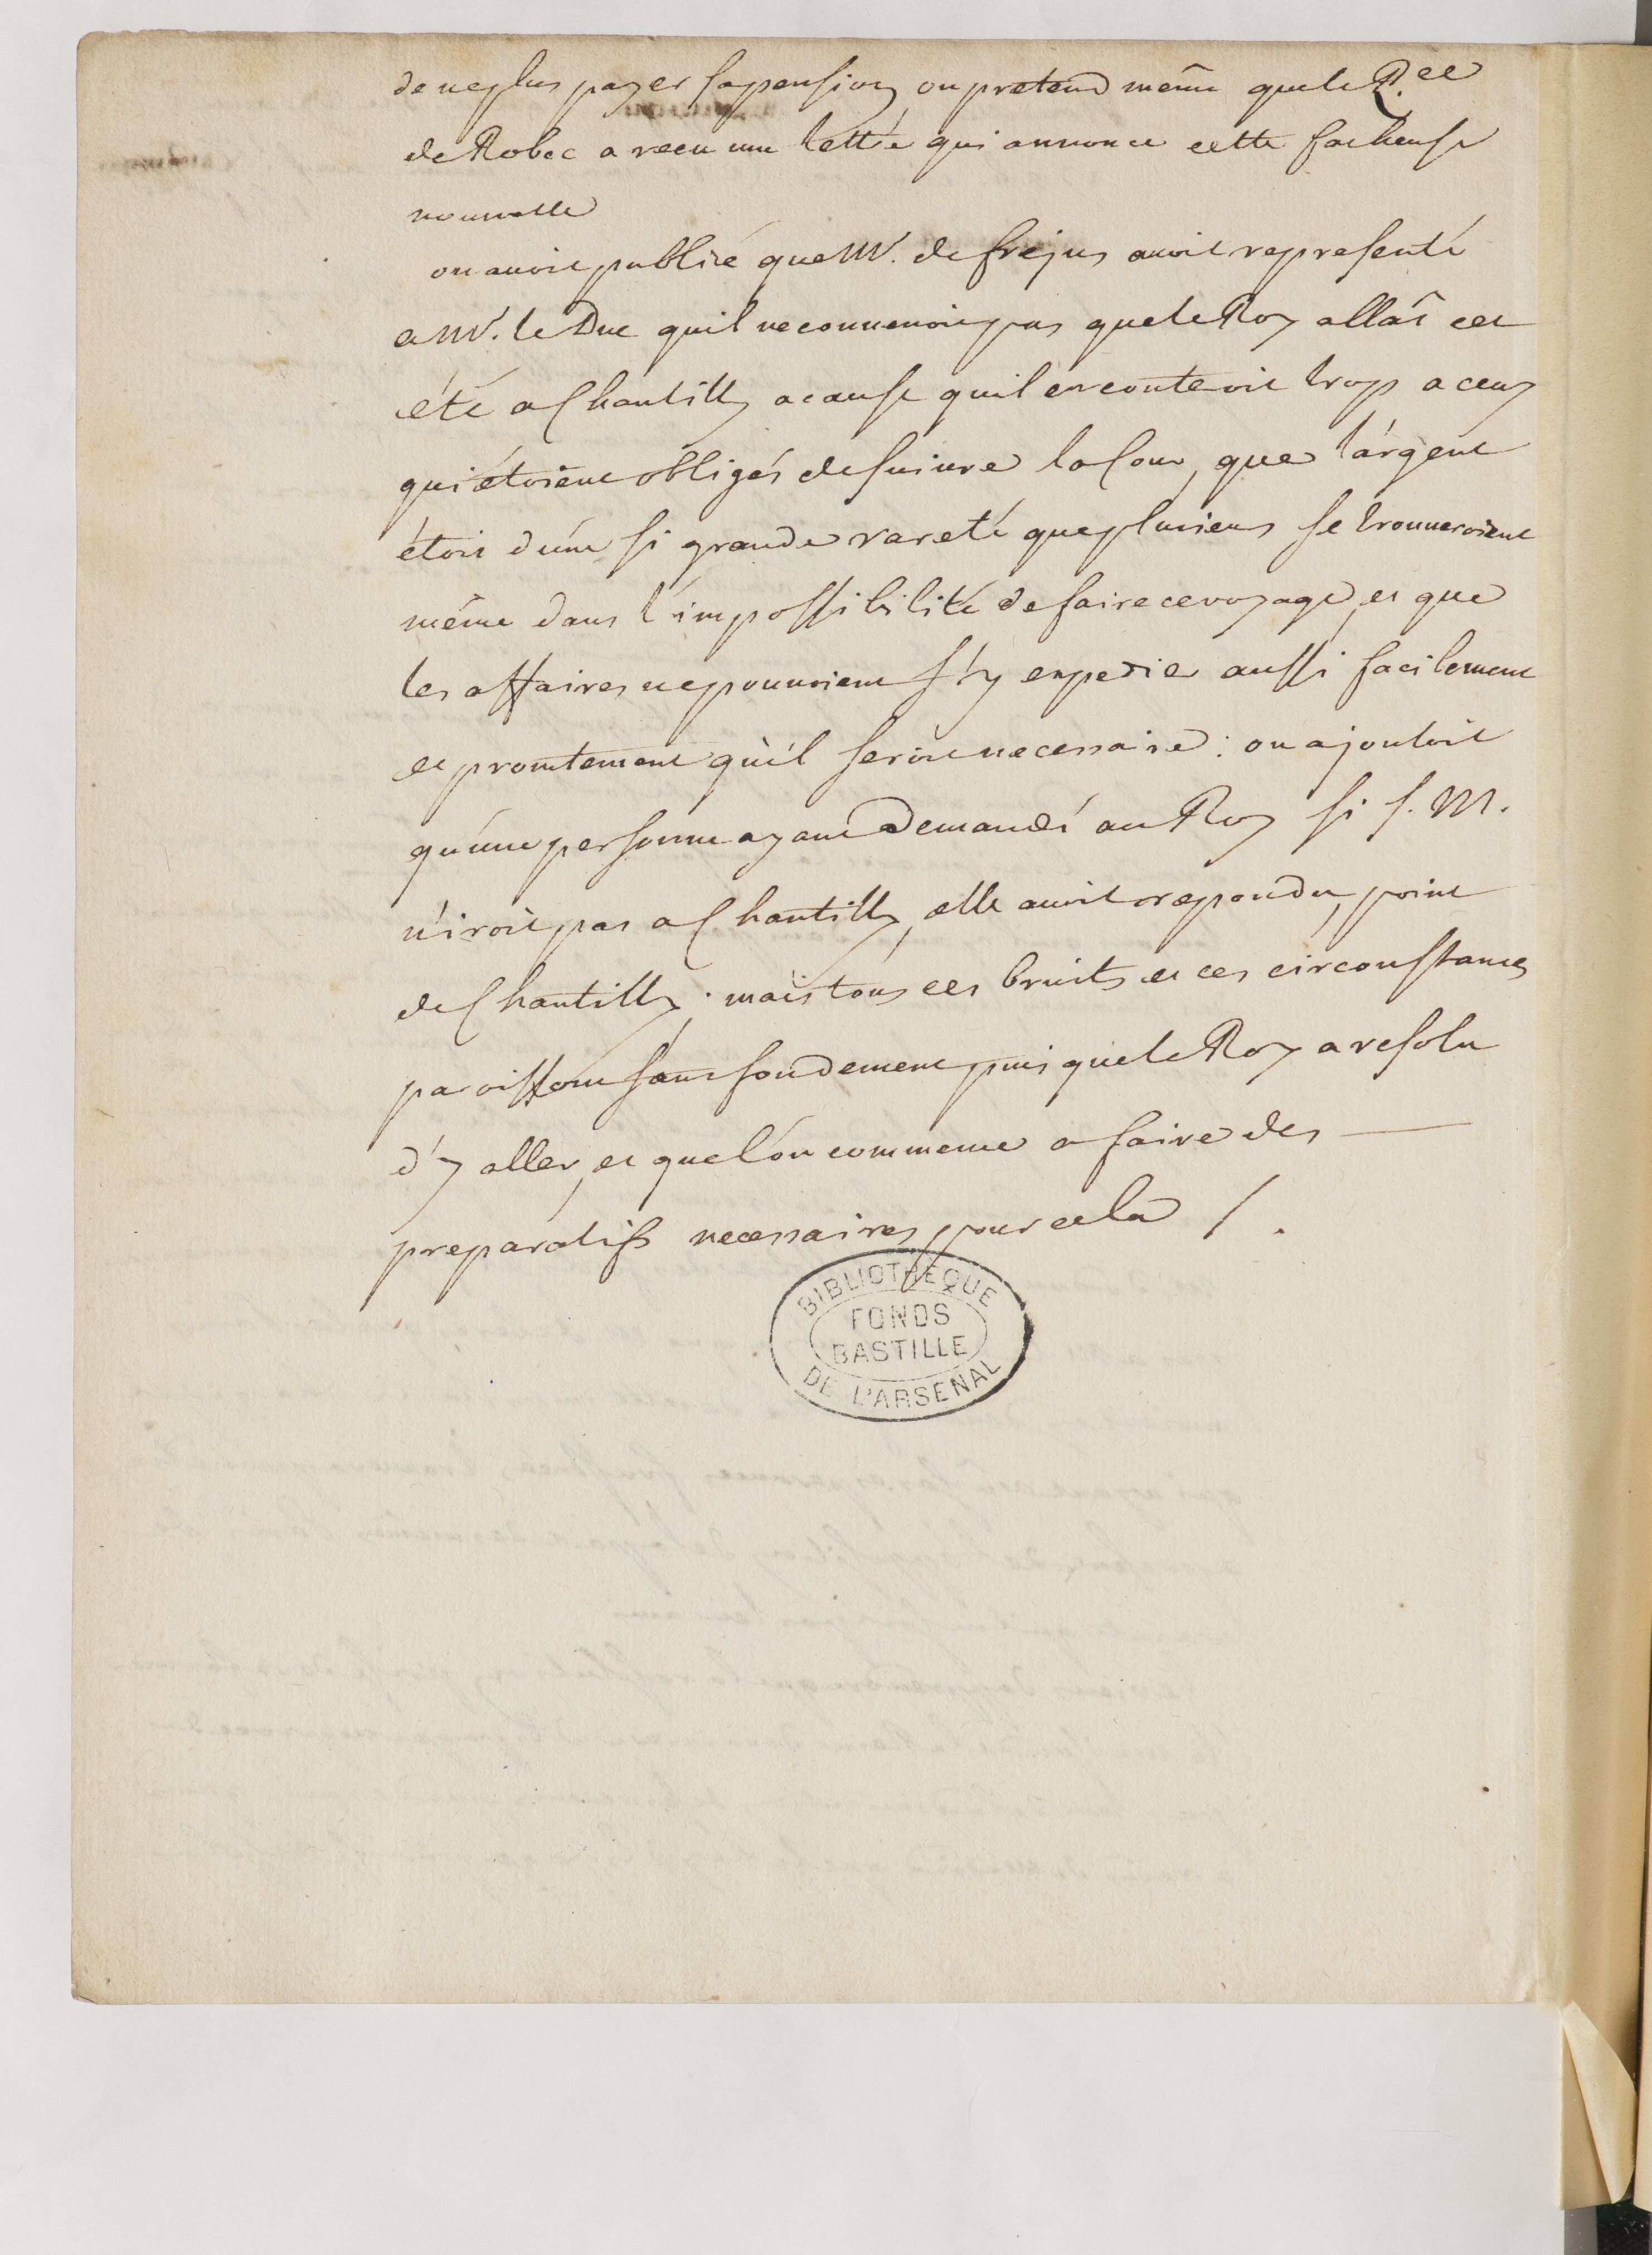 de ne plus payer sa pension, on pretend même que le P.ce
de Robec a recu une lettre qui annonce cette facheuse
nouvelle
on avoit publié que M. de frejus avoit representé
a M. le Duc quil ne convenoit pas que le Roy allât cet
été a Chantilly a cause quil en couteroit trop a ceux
qui étoient obligés de suivre la Cour, que l'argent
étoit d'une si grande rareté que plusieurs se trouveroient
même dans l'impossibilité de faire ce voyage, et que
les affaires ne pouvoient s'y expedier aussi facilement
et promtement qu'il seroit necessaire : on ajoutoit
qu'une personne ayant demandé au Roy si S. M.
n'iroit pas a Chantilly, elle avoit repondu, point
de Chantilly. mais tous ces bruits et ces circonstances
paroissent sans fondement puisque le Roy a resolu
d'y aller, et que l'on commence a faire des
preparatifs necessaires pour cela /.
BIBLIOTHEQUE
FONDS
BASTILLE
DE L'ARSENAL